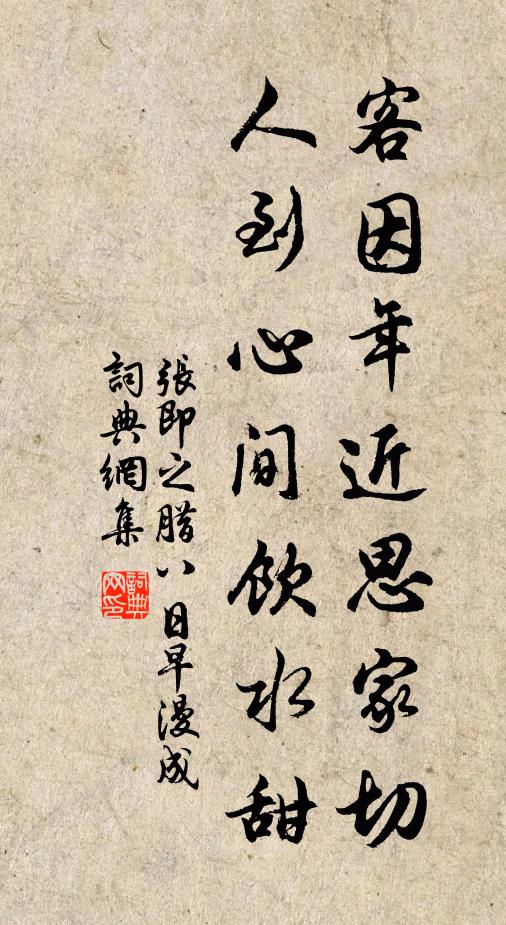 客因年近思家切
人到心间飲水甜
張即之腊八日早漫成
詞典網集
詞典网印